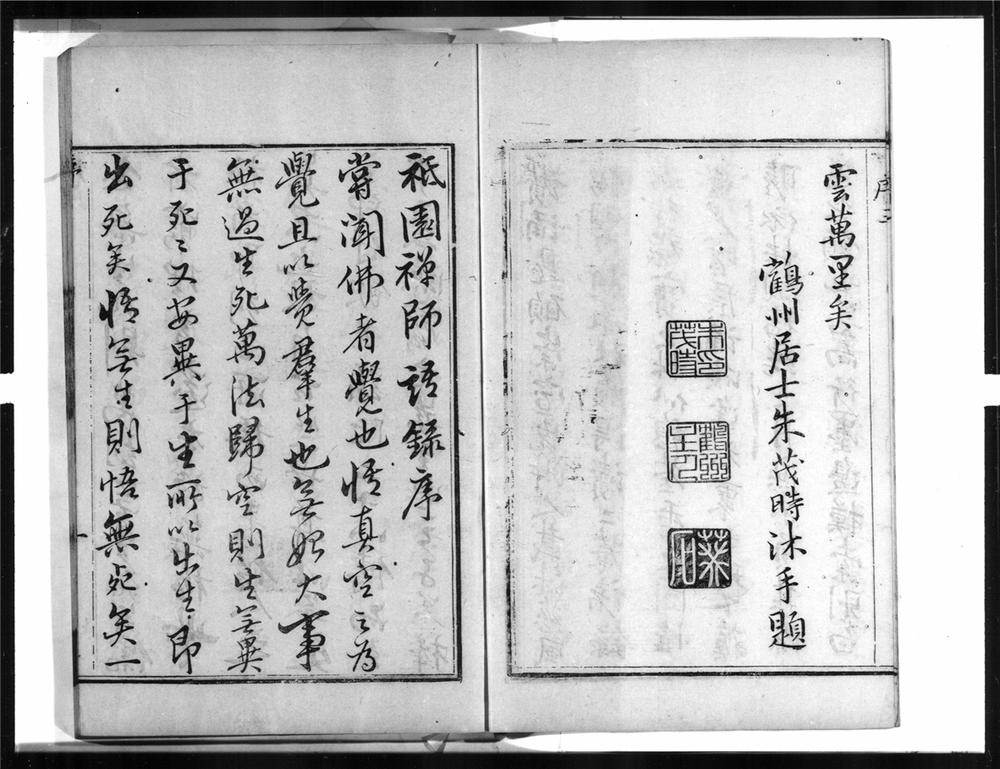 序三
雲萬里矣
鶴州居士朱茂時沐手題
朱茂時印
鶴州
葵石
祇園禅師語錄序
嘗聞佛者覺也悟真空之為
覺且以覺羣生也無如大事
無過生死萬法歸空則生無異
于死〻又安異于生所以出生即
出死矣悟無生則悟無死矣一
序
一